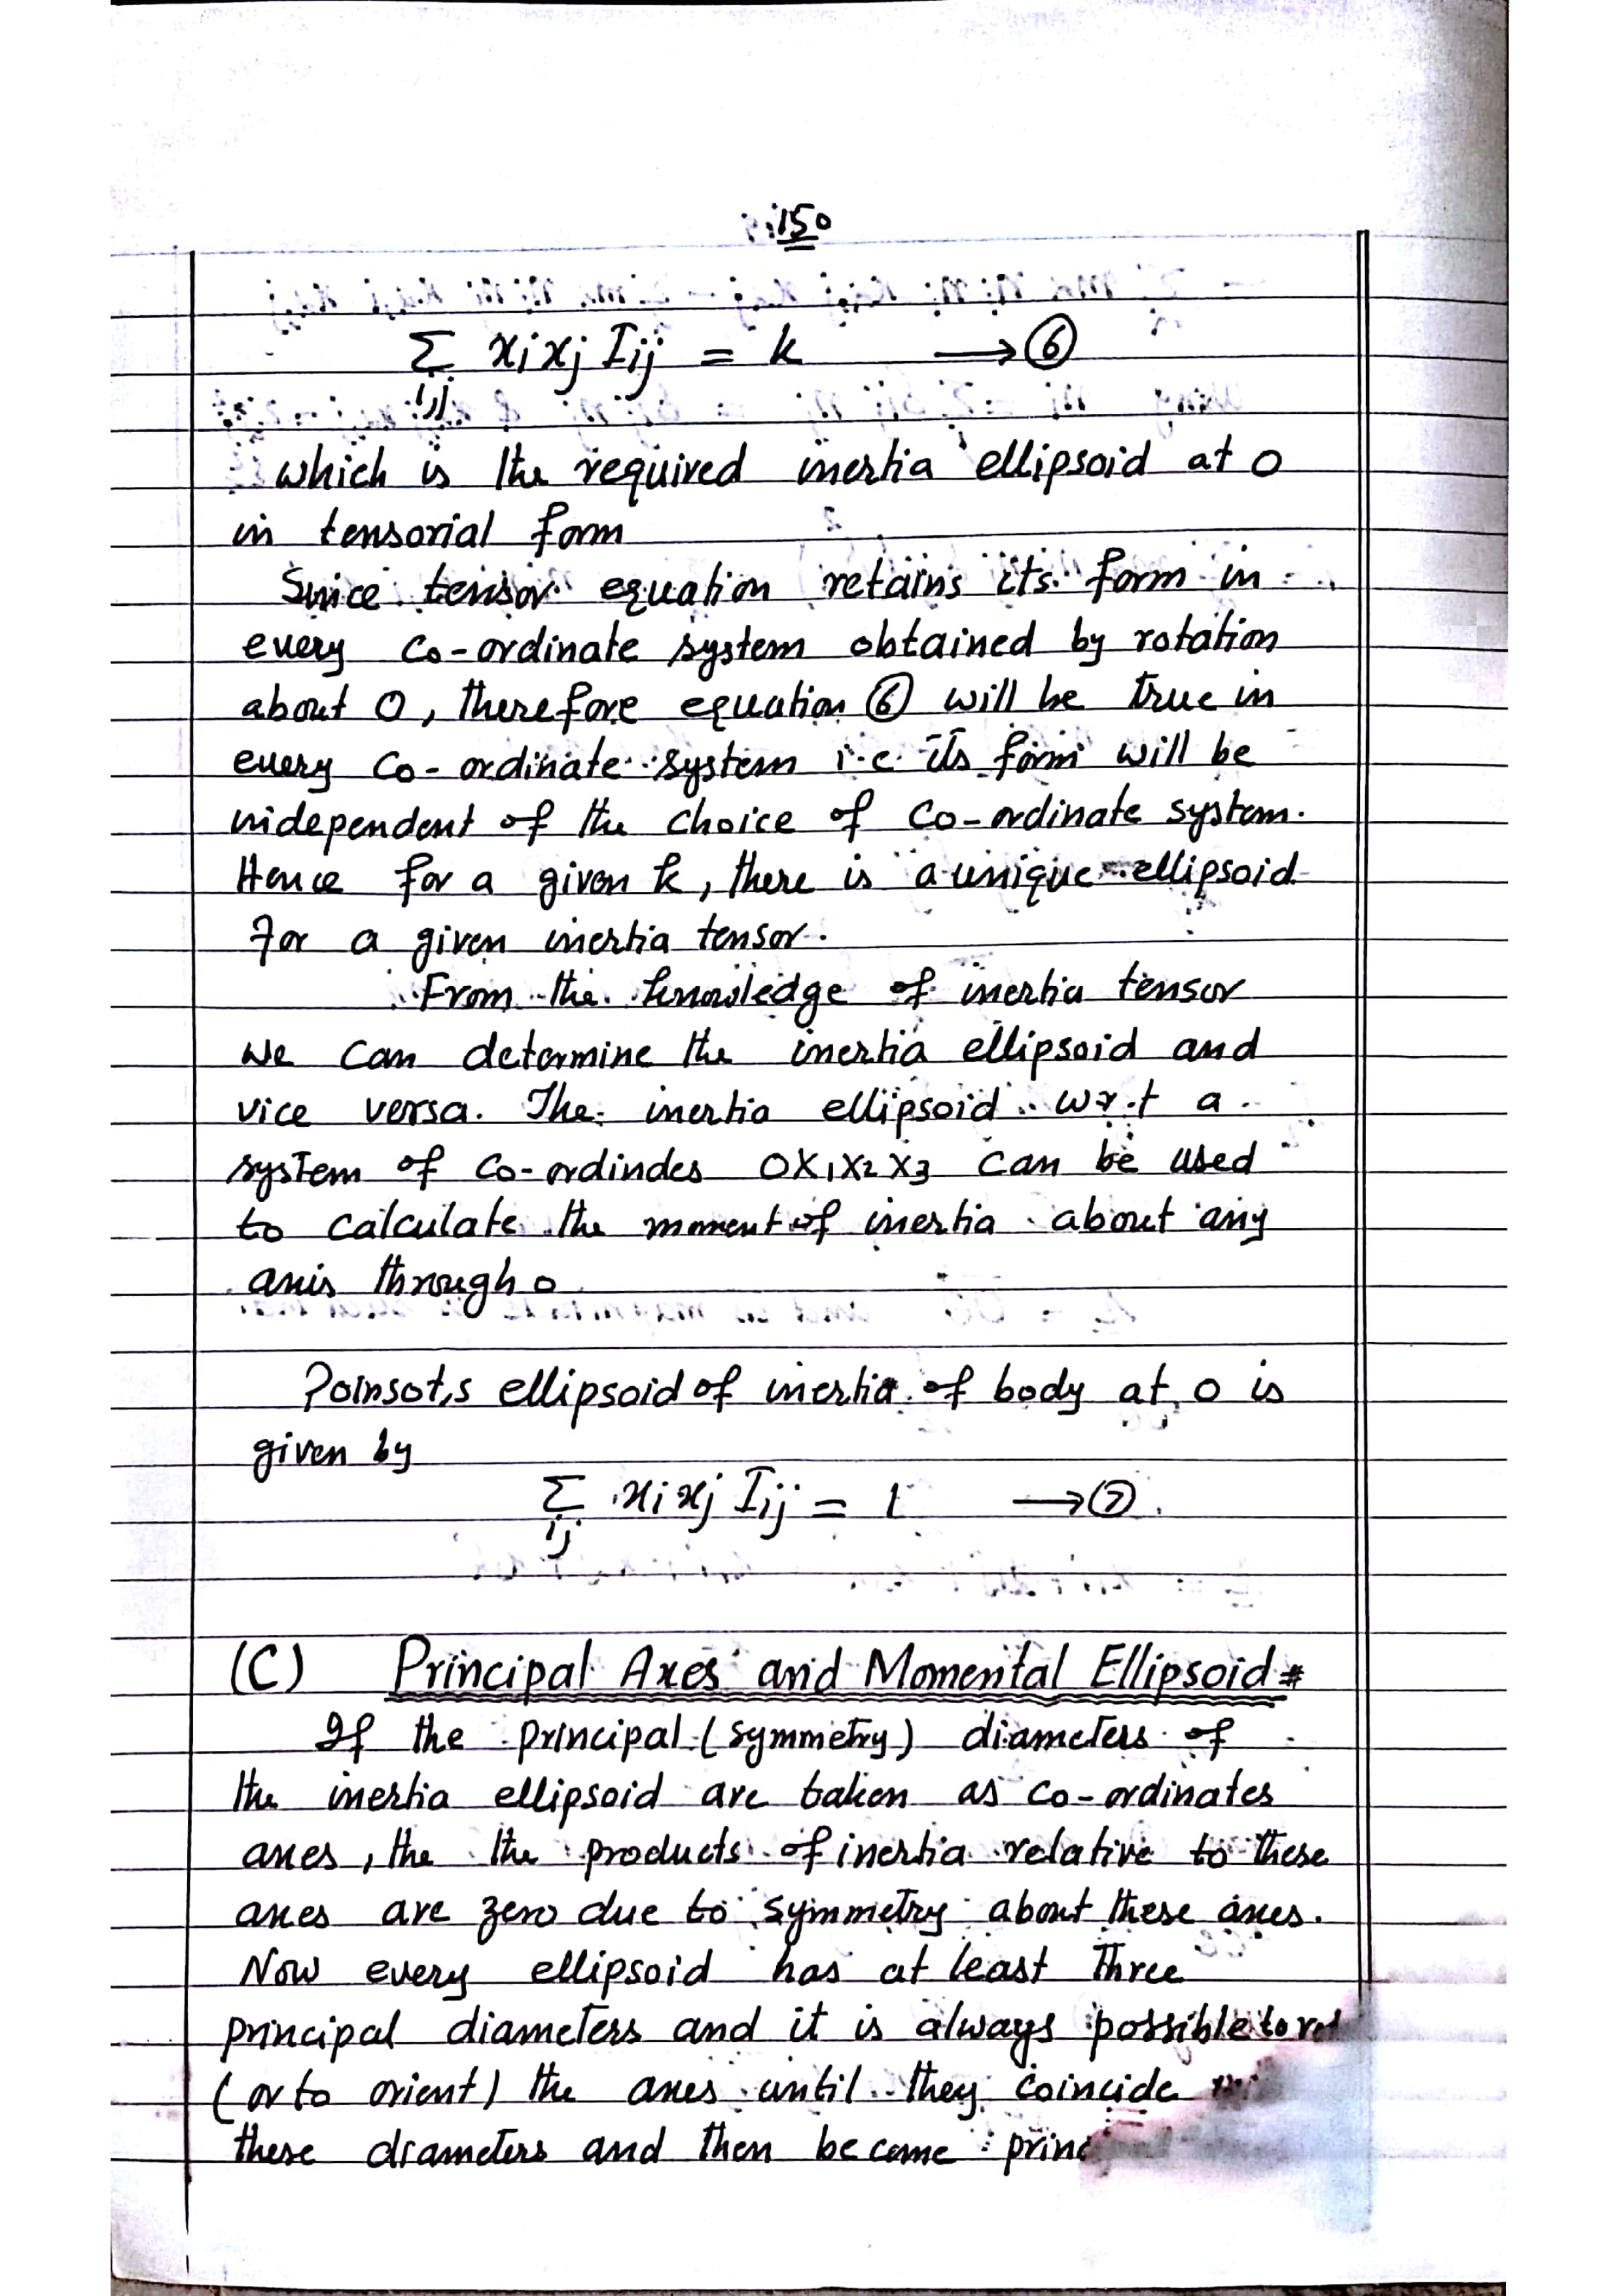 150
Σ xi xj Iij = k → ⑥
i,j
which is the required inertia ellipsoid at O
in tensorial form
Since tensor equation retains its form in
every co-ordinate system obtained by rotation
about O, therefore equation ⑥ will be true in
every co-ordinate system i.e. its form will be
independent of the choice of co-ordinate system.
Hence for a given k, there is a unique ellipsoid
for a given inertia tensor.
From the knowledge of inertia tensor
we can determine the inertia ellipsoid and
vice versa. The inertia ellipsoid w.r.t a
system of co-ordindes OX1X2X3 can be used
to calculate the moment of inertia about any
axis through O
Poinsot,s ellipsoid of inertia of body at O is
given by
Σ xi xj Iij = 1 → ⑦.
ij
(C) Principal Axes and Momental Ellipsoid #
If the principal (symmetry) diameters of
the inertia ellipsoid are taken as co-ordinates
axes, the the products of inertia relative to these
axes are zero due to symmetry about these axes.
Now every ellipsoid has at least three
principal diameters and it is always possible to
(or to orient) the axes until they coincide
these diameters and then become